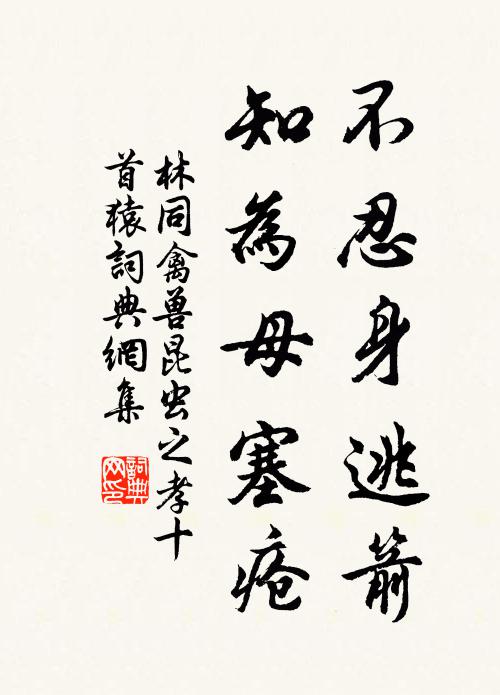 不忍身逃箭
知為母塞瘡
林同禽兽昆虫之孝十
首猿詞典網集
詞典网印